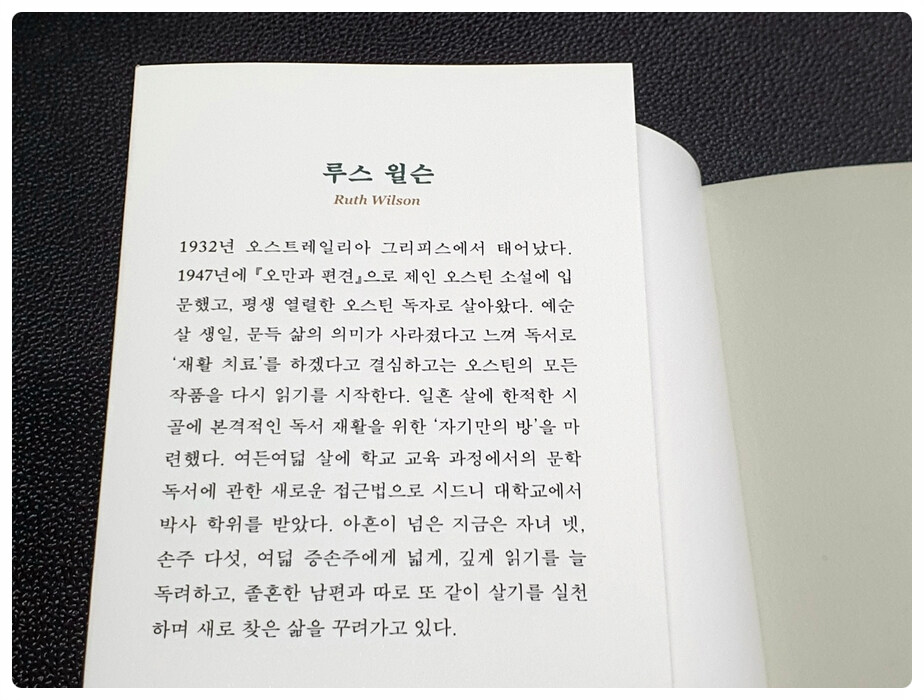 루스 윌슨
Ruth Wilson
1932년 오스트레일리아 그리피스에서 태어났다.
1947년에 『오만과 편견』으로 제인 오스틴 소설에 입
문했고, 평생 열렬한 오스틴 독자로 살아왔다. 예순
살 생일, 문득 삶의 의미가 사라졌다고 느껴 독서로
‘재활 치료’를 하겠다고 결심하고는 오스틴의 모든
작품을 다시 읽기를 시작한다. 일흔 살에 한적한 시
골에 본격적인 독서 재활을 위한 ‘자기만의 방’을 마
련했다. 여든여덟 살에 학교 교육 과정에서의 문학
독서에 관한 새로운 접근법으로 시드니 대학교에서
박사 학위를 받았다. 아흔이 넘은 지금은 자녀 넷,
손주 다섯, 여덟 증손주에게 넓게, 깊게 읽기를 늘
독려하고, 졸혼한 남편과 따로 또 같이 살기를 실천
하며 새로 찾은 삶을 꾸려가고 있다.